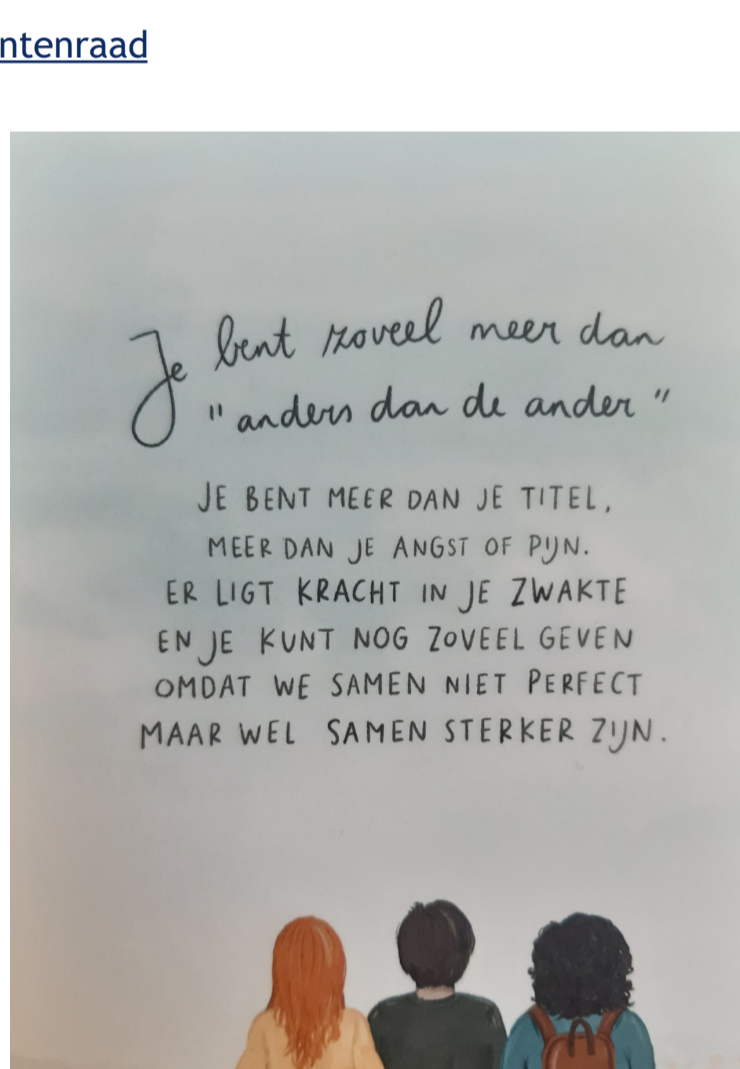 ntenraad
Je bent zoveel meer dan
"anders dan de ander"
JE BENT MEER DAN JE TITEL,
MEER DAN JE ANGST OF PIJN.
ER LIGT KRACHT IN JE ZWAKTE
EN JE KUNT NOG ZOVEEL GEVEN
OMDAT WE SAMEN NIET PERFECT
MAAR WEL SAMEN STERKER ZIJN.